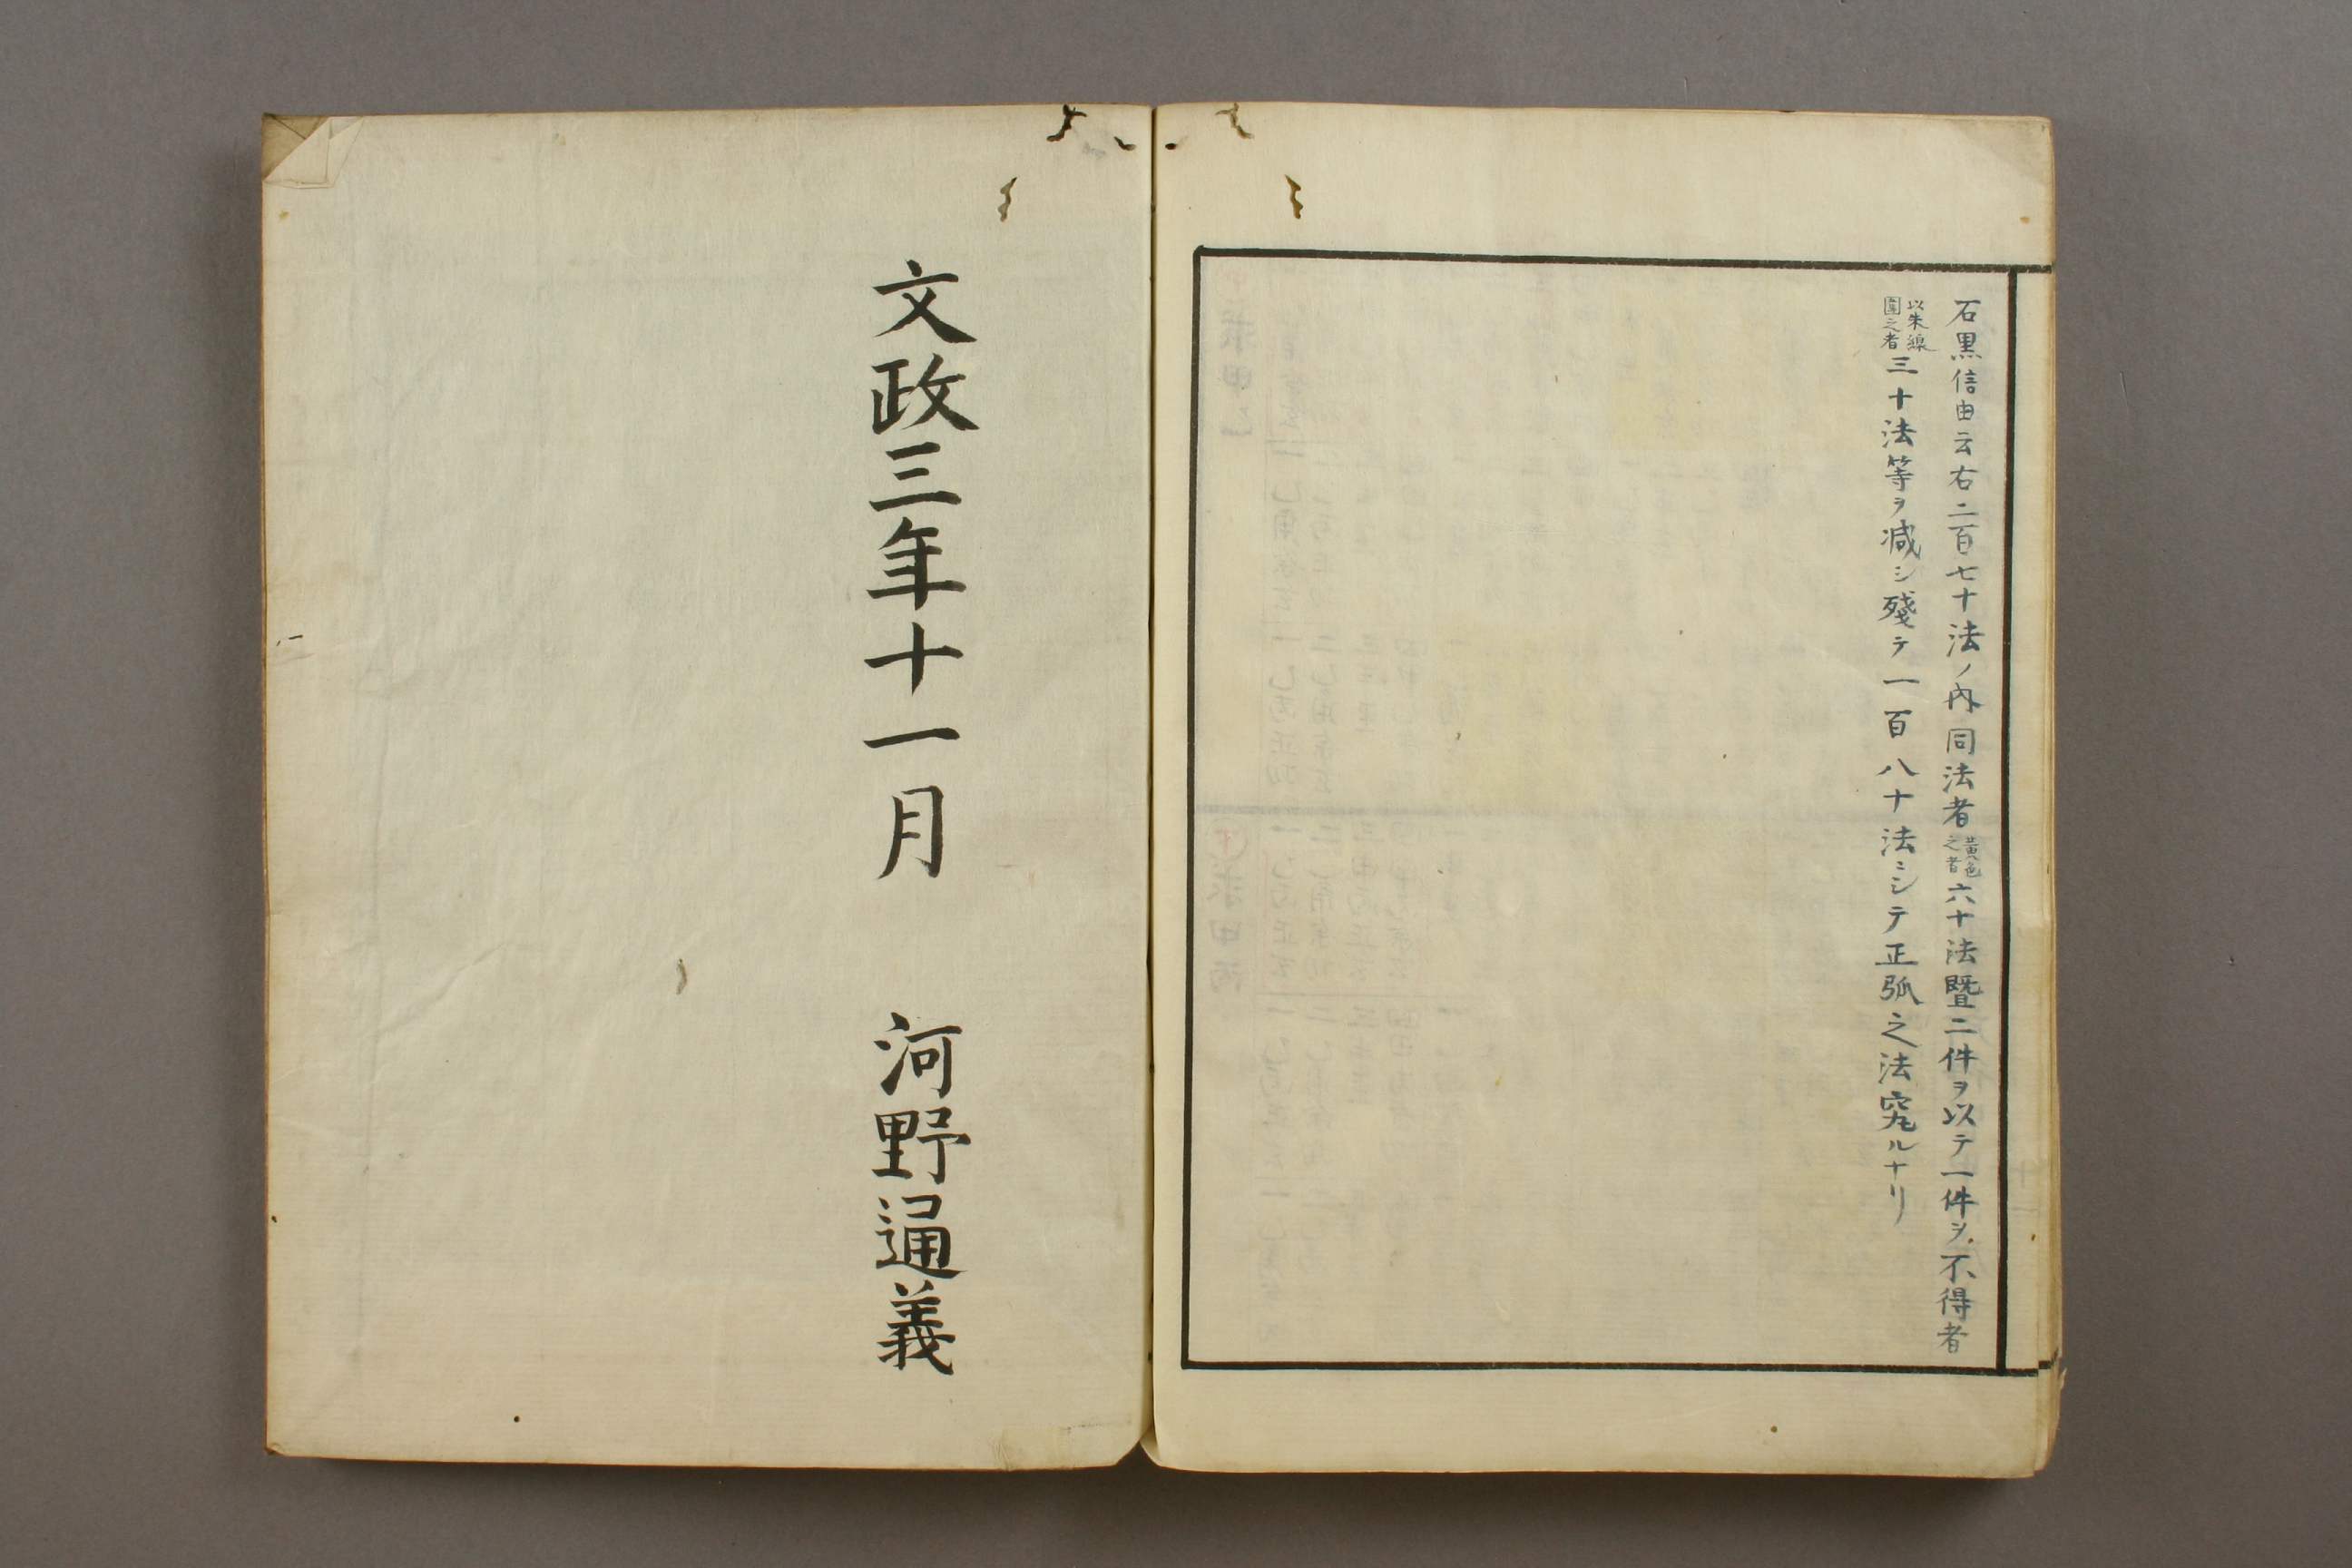 石黒信由云右二百七十法ノ内同法者黄色之者六十法曁二件ヲ以テ一件ヲ不得者
以朱線圍之者三十法等ヲ減シ殘テ一百八十法ニシテ正弧之法究ルナリ
文政三年十一月　河野通義